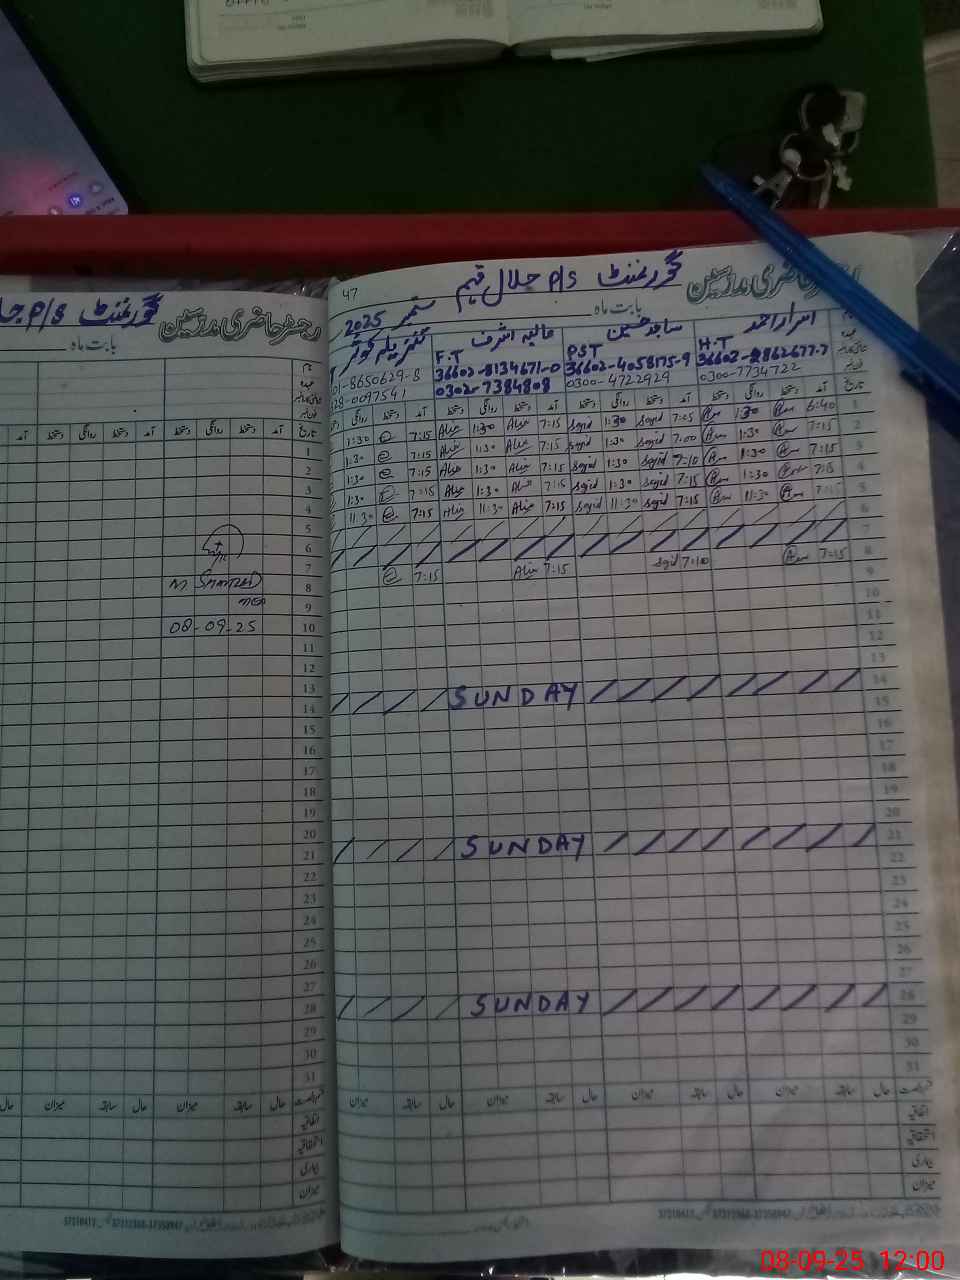 رجسٹر حاضری مدرسین
گورنمنٹ P/S
بابت ماہ
تاریخ
آمد دستخط روانگی دستخط آمد
1
2
3
4
5
6
7
8
9
10
11
12
13
14
15
16
17
18
19
20
21
22
23
24
25
26
27
28
29
30
31
08-09-25
حال سابقہ میزان حال
اتفاقیہ
استحقاقیہ
بیماری
میزان
47
رجسٹر حاضری مدرسین
گورنمنٹ P/S جلال قیم
بابت ماہ ستمبر 2025
اسرار احمد
H.T
0300-7734722
ساجد حسین
PST
36602-4058175-9
0300-4722929
عالیہ اشرف
F.T
36602-8134671-0
0302-7384808
01-8650629-8
28-0097541
تاریخ آمد دستخط روانگی دستخط آمد دستخط روانگی دستخط آمد دستخط روانگی دستخط آمد دستخط روانگی
1 6:40 1:30 7:05 Sajid 1:30 Sajid 7:15 Alia 1:30 Alia 7:15 1:30
2 7:15 1:30 7:00 Sajid 1:30 Sajid 7:15 Alia 1:30 Alia 7:15 1:30
3 7:15 1:30 7:10 Sajid 1:30 Sajid 7:15 Alia 1:30 Alia 7:15 1:30
4 7:15 1:30 7:15 Sajid 1:30 Sajid 7:15 Alia 1:30 Alia 7:15 1:30
5 7:15 11:30 7:15 Sajid 11:30 Sajid 7:15 Alia 11:30 Alia 7:15 11:30
6
7
8 7:15 7:10 Sajid 7:15 Alia 7:15
9
10
11
12
13
14 SUNDAY
15
16
17
18
19
20
21 SUNDAY
22
23
24
25
26
27
28 SUNDAY
29
30
31
حال سابقہ میزان حال سابقہ میزان حال سابقہ میزان حال سابقہ میزان
اتفاقیہ
استحقاقیہ
بیماری
میزان
08-09-25 12:00